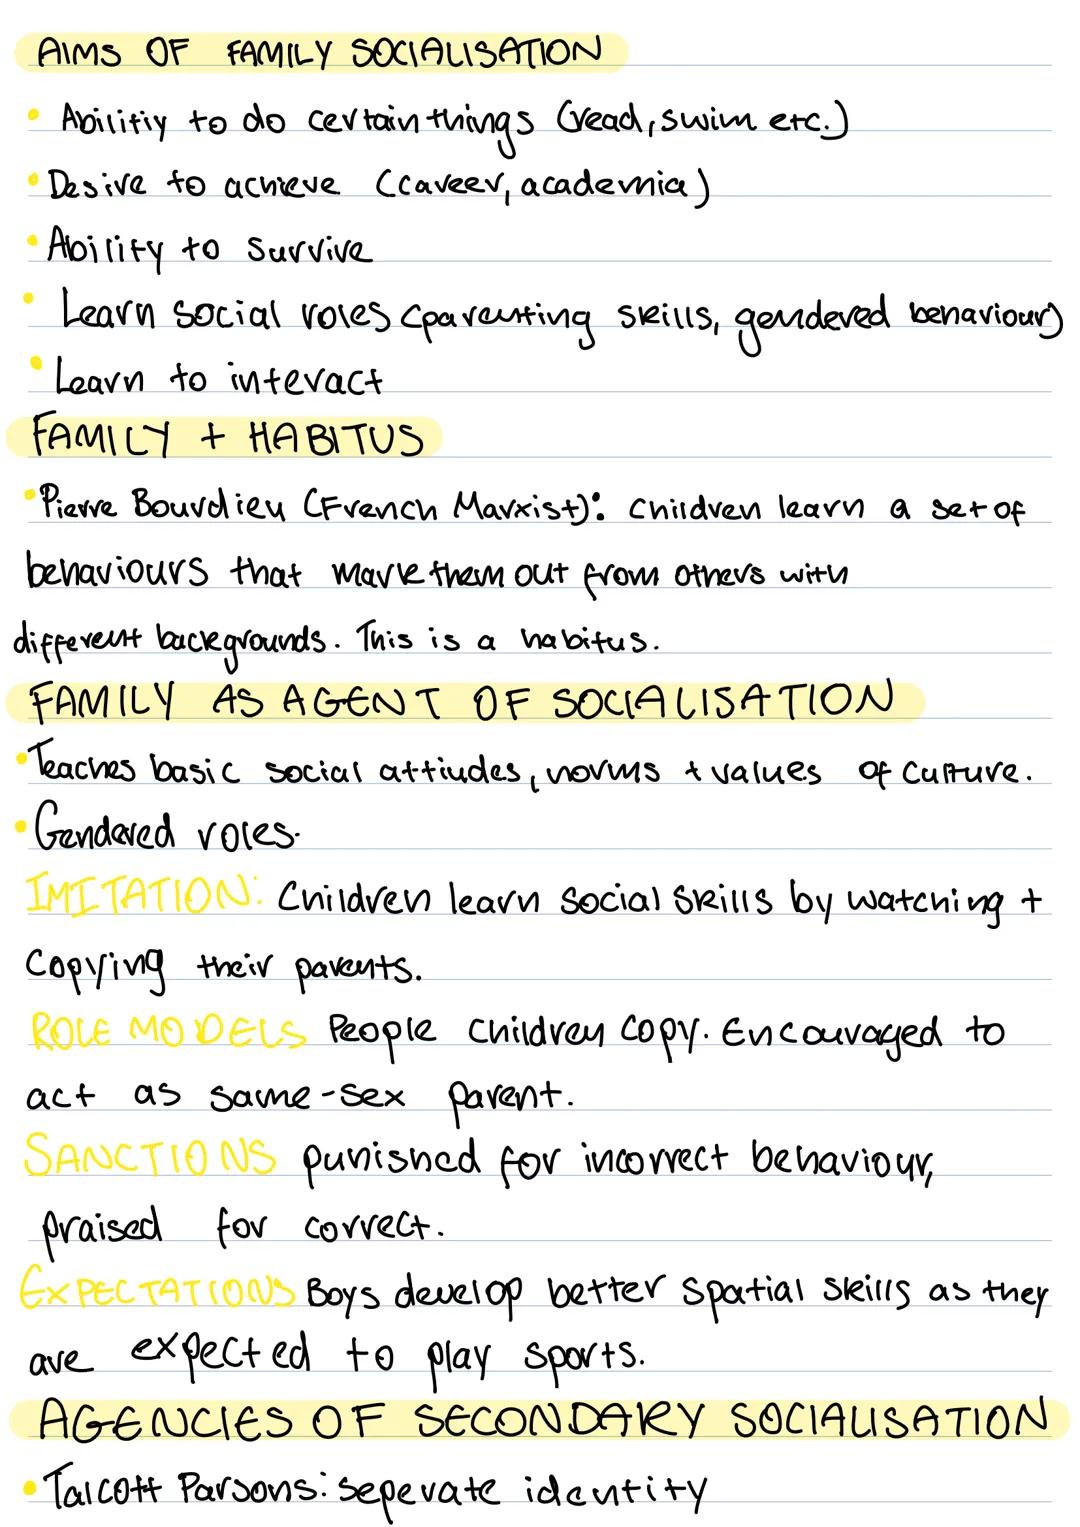 AIMS OF FAMILY SOCIALISATION
• Abilitiy to do certain things (read, swim etc.)
• Desire to achieve (career, academia)
• Ability to survive
• Learn social roles (parenting skills, gendered behaviour)
• Learn to interact
FAMILY + HABITUS
• Pierre Bourdieu (French Marxist): children learn a set of
behaviours that mark them out from others with
different backgrounds. This is a habitus.
FAMILY AS AGENT OF SOCIALISATION
• Teaches basic social attiudes, norms + values of culture.
• Gendered roles.
IMITATION: Children learn social skills by watching +
copying their parents.
ROLE MODELS People children copy. Encouraged to
act as same-sex parent.
SANCTIONS punished for incorrect behaviour,
praised for correct.
EXPECTATIONS Boys develop better spatial skills as they
are expected to play sports.
AGENCIES OF SECONDARY SOCIALISATION
• Talcott Parsons: seperate identity